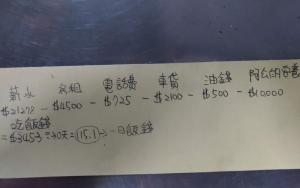 薪水 房租 電話費 車貸 油錢
$21279 - $4500 - $725 - $2100 - $500 - $10,000
吃飯錢
= $3453 ÷ 30天 = 115.1 → 一日飯錢